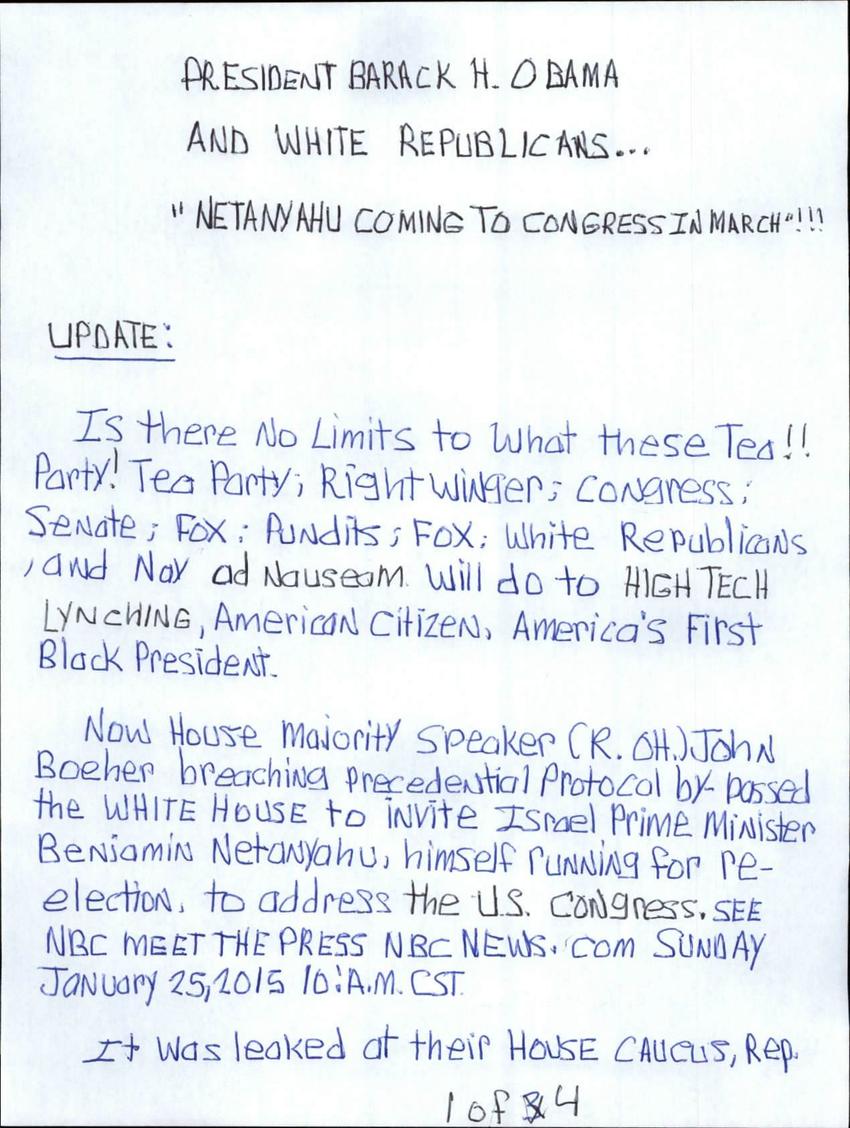 PRESIDENT BARACK H. OBAMA
AND WHITE REPUBLICANS...
"NETANYAHU COMING TO CONGRESS IN MARCH"!!!
UPDATE:
Is there No Limits to What these Tea!!
Party! Tea Party; Right Winger; Congress;
Senate; FOX; Pundits; FOX; White Republicans
, and Nay ad Nauseam will do to HIGH TECH
LYNCHING, American Citizen, America's First
Black President.
Now House Majority Speaker (R. OH.) John
Boeher breaching precedential Protocol by-passed
the WHITE HOUSE to invite Israel Prime Minister
Benjamin Netanyahu, himself running for re-
election, to address the U.S. Congress. SEE
NBC MEET THE PRESS NBC NEWS.COM SUNDAY
January 25, 2015 10:A.M. CST.
It was leaked at their HOUSE CAUCUS, Rep.
1 of 4